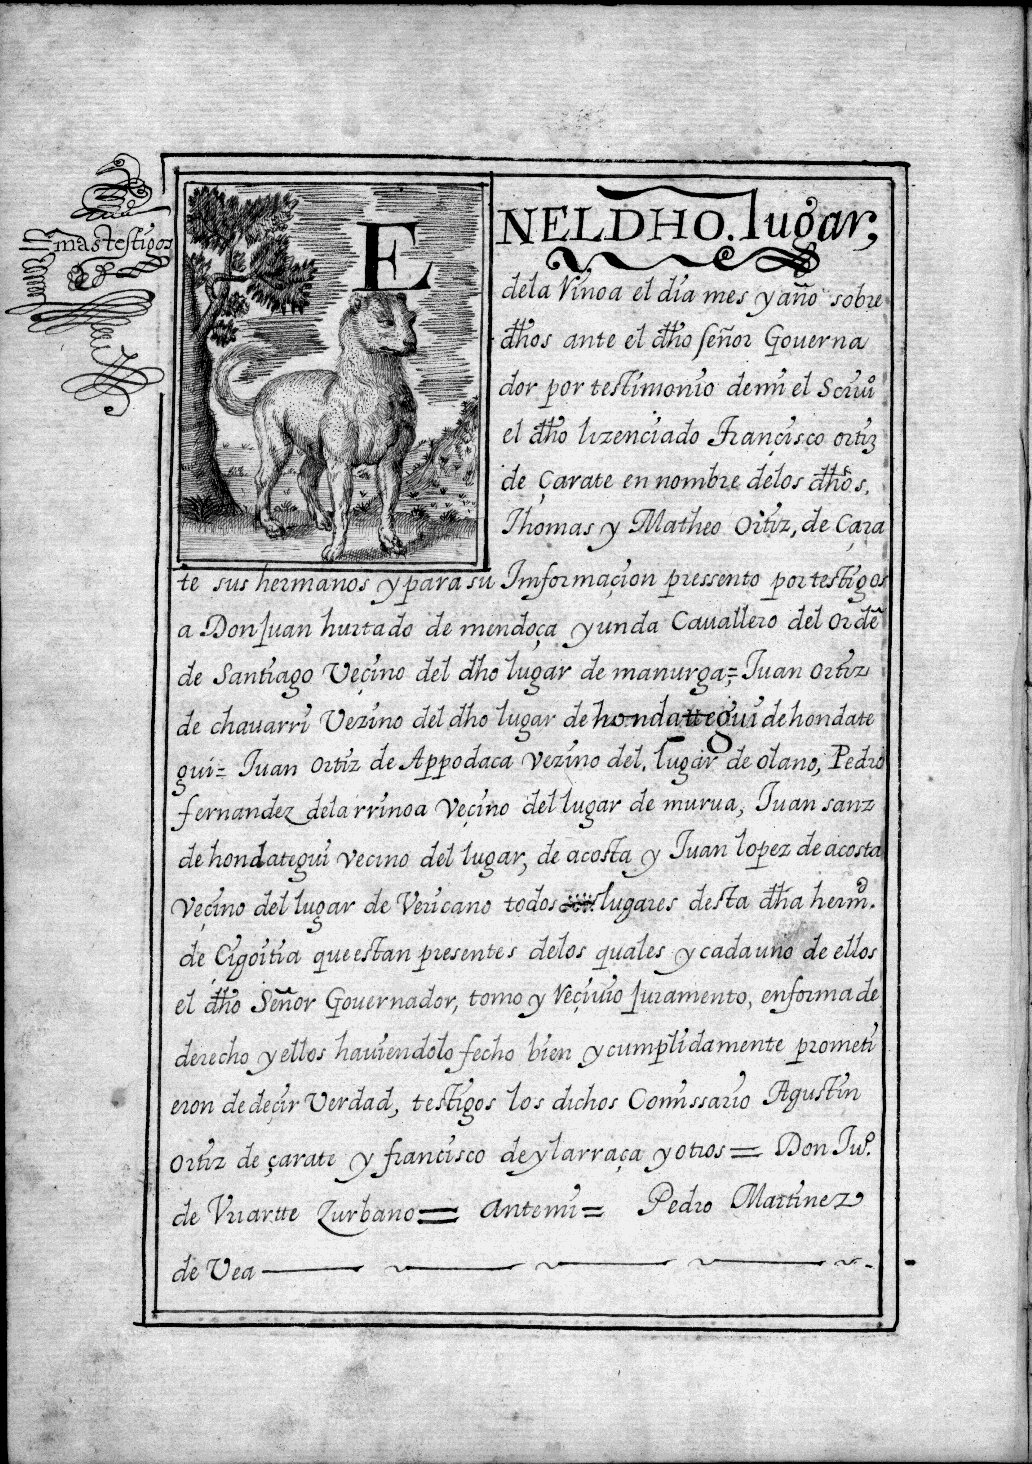 mas testigos
ENELDHO. lugar,
dela Rinoa el dia mes y año sobre
dhos ante el dho señor Gouerna
dor por testimonio demi el Scriuº
el dho lizençiado Françisco ortiz
de Çarate en nombre delos dhos.
Thomas y Matheo Ortiz, de Çara
te sus hermanos y para su Imformaçion pressento por testigos
a Don Juan hurtado de mendoça y unda Cauallero del ordẽ
de Santiago Veçino del dho lugar de manurga= Juan ortiz
de chauarri Vezino del dho lugar de hondattegui de hondate
gui= Juan ortiz de Appodaca vezino del. lugar de olano, Pedro
fernandez dela rrinoa veçino del lugar de murua, Juan sanz
de hondategui vecino del lugar, de acosta y Juan lopez de acosta
veçino del lugar de Vericano todos lugares desta dha hermd.
de Cigoitia que estan presentes delos quales y cada uno de ellos
el dho Señor Gouernador, tomo y Reçiuio Juramento, en forma de
derecho y ellos hauiendolo fecho bien y cumplidamente prometi
eron de deçir Verdad, testigos los dichos Comissario Agustin
ortiz de çarate y francisco de ylarraça y otros= Don Juº.
de Vriartte Zurbano= Antemi= Pedro Martinez
de Vea